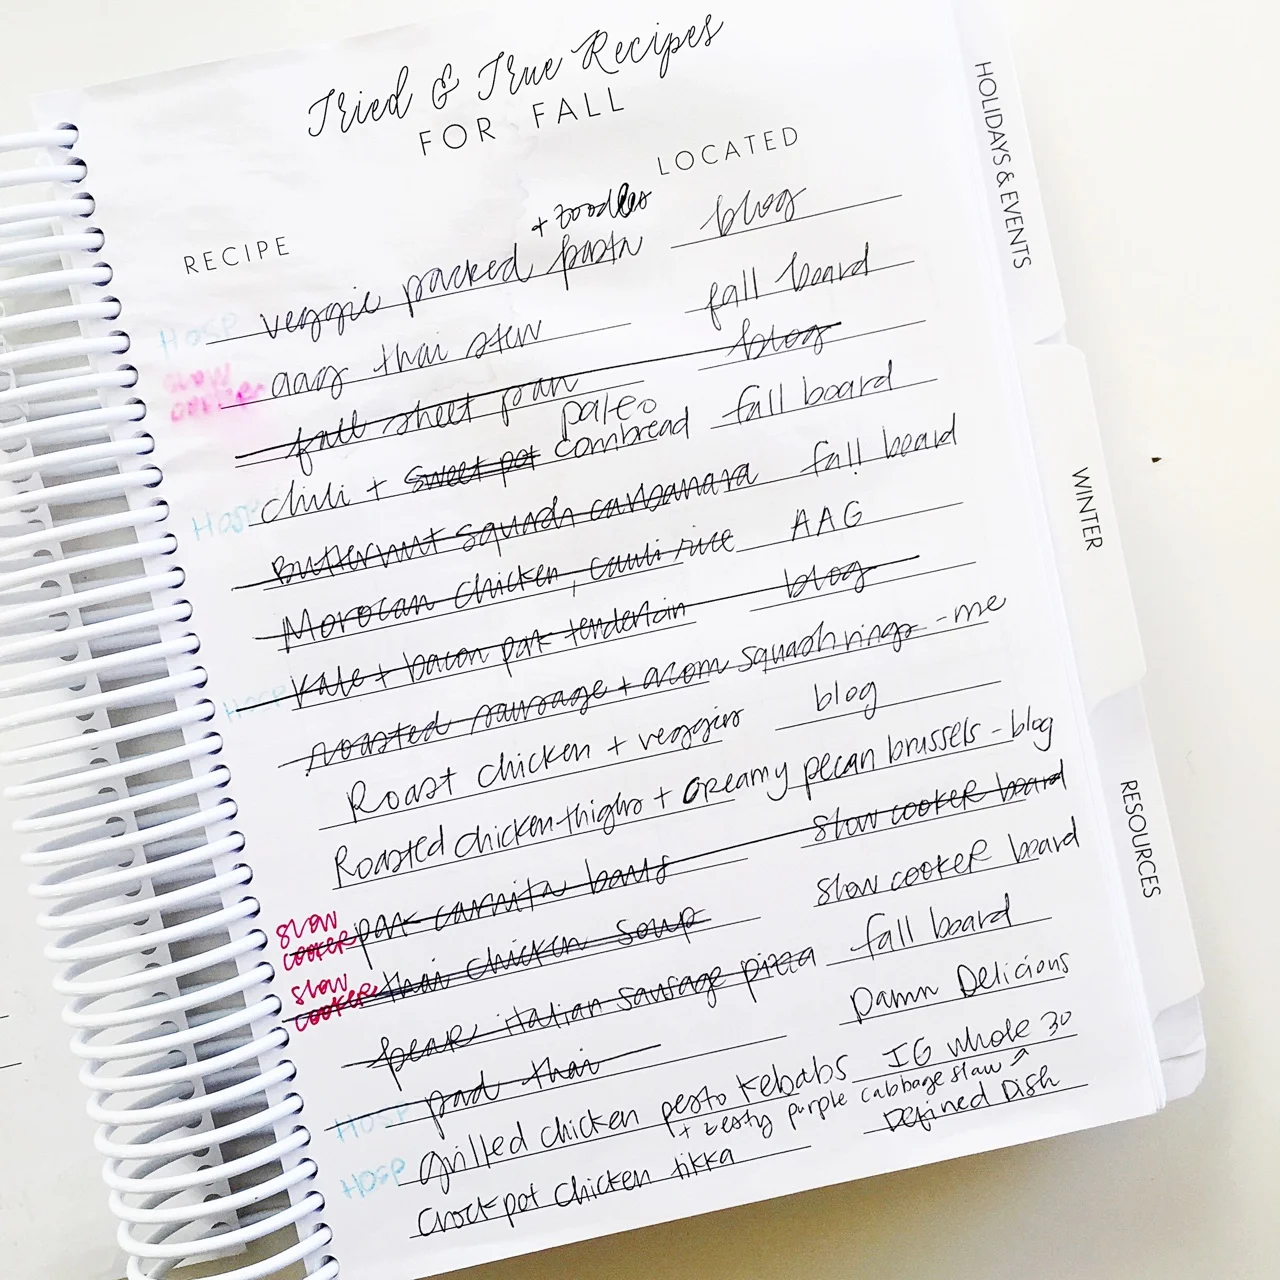 Tried & True Recipes
FOR FALL
RECIPE LOCATED
+ zoodles
veggie packed pasta blog
HOSP
aag thai stew fall board
slow
cooker
fall sheet pan blog
paleo
chili + sweet pot cornbread fall board
HOSP
Butternut squash carbanara fall board
Morocan chicken, cauli rice AAG
Kale + bacon pork tenderloin blog
HOSP
roasted sausage + acorn squash rings - me
Roast chicken + veggies blog
Roasted chicken thighs + creamy pecan brussels - blog
slow
cooker pork carnita bowls slow cooker board
slow
cooker thai chicken soup slow cooker board
pear italian sausage pizza fall board
pad thai Damn Delicious
HOSP
grilled chicken pesto kebabs IG whole 30
+ zesty purple cabbage slaw
HOSP
crockpot chicken tikka Defined Dish
HOLIDAYS & EVENTS
WINTER
RESOURCES